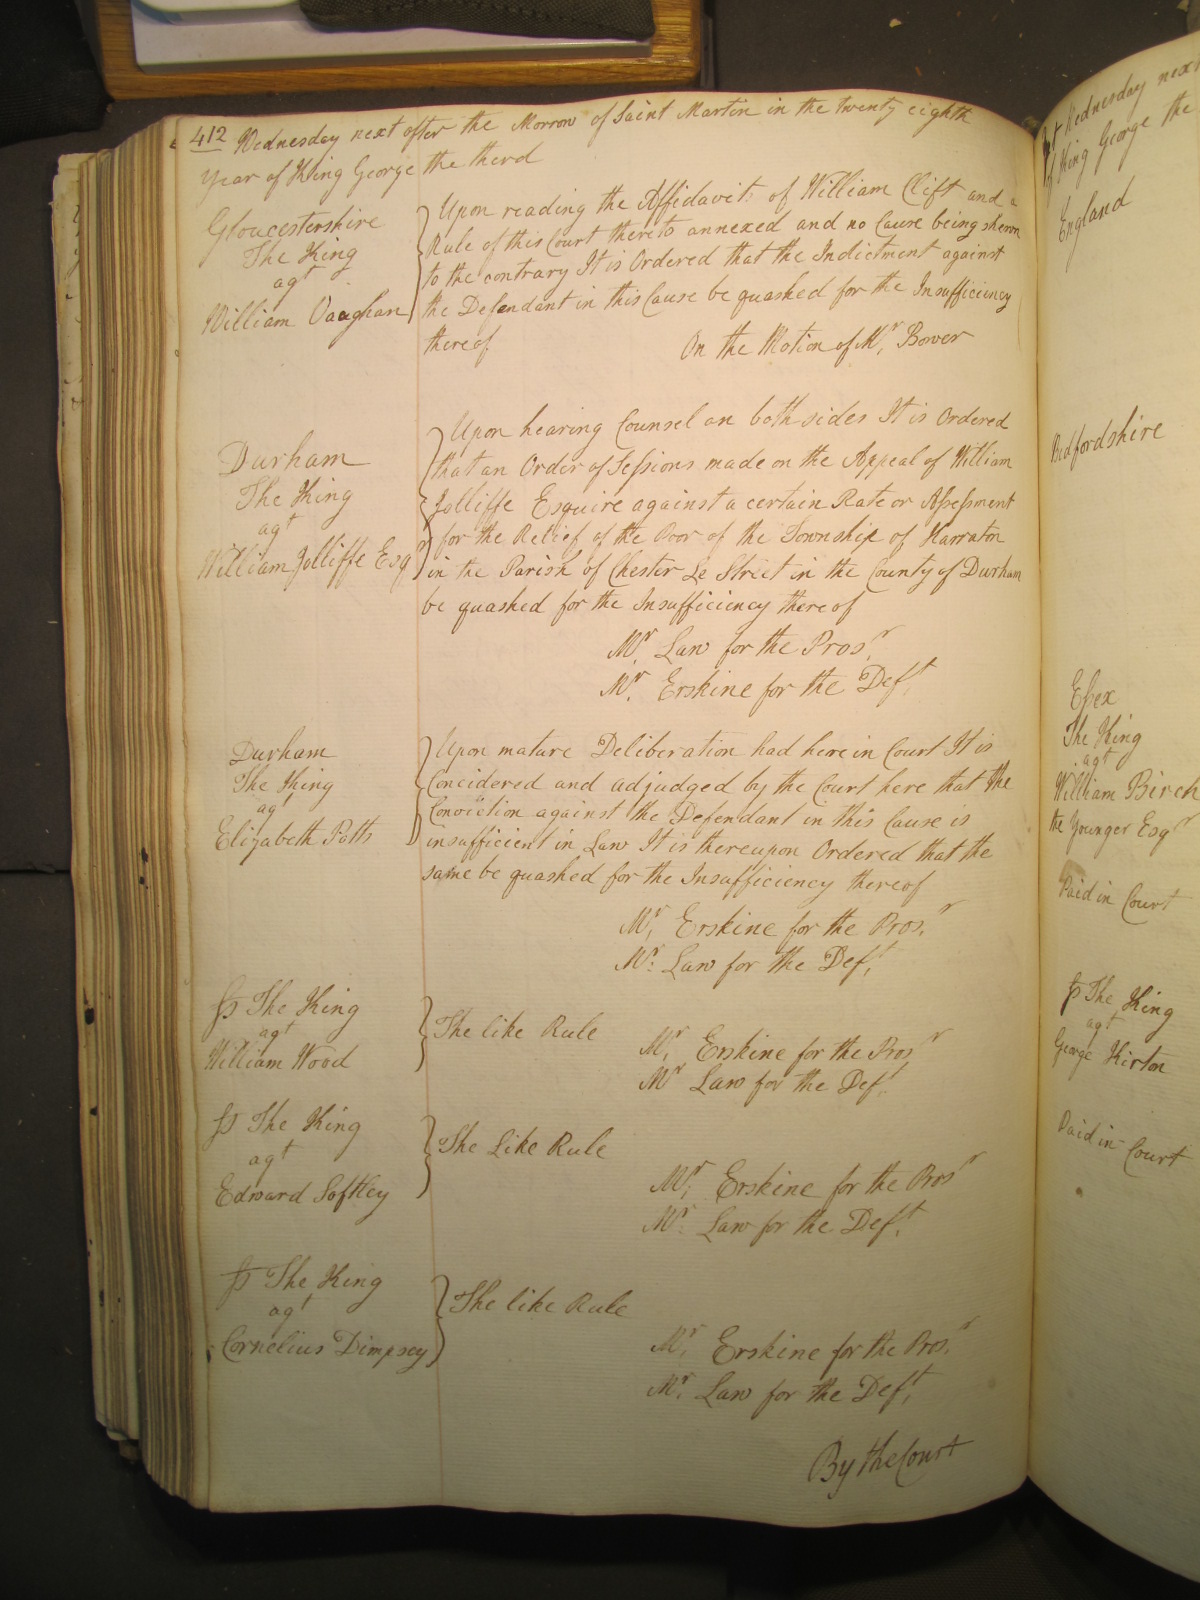 412 Wednesday next after the Morrow of Saint Martin in the twenty eighth
Year of King George the third
Gloucestershire
The King
agt
William Vaughan
Upon reading the Affidavits of William Clift and a
Rule of this Court thereto annexed and no Cause being shewn
to the contrary It is Ordered that the Indictment against
the Defendant in this Cause be quashed for the Insufficiency
thereof
On the Motion of Mr. Bower
Durham
The King
agt
William Jolliffe Esqr
Upon hearing Counsel on both sides It is Ordered
that an Order of Sessions made on the Appeal of William
Jolliffe Esquire against a certain Rate or Assessment
for the Relief of the Poor of the Township of Harraton
in the Parish of Chester Le Street in the County of Durham
be quashed for the Insufficiency thereof
Mr. Law for the Prosr.
Mr. Erskine for the Deft.
Durham
The King
agt
Elizabeth Potts
Upon mature Deliberation had here in Court It is
Concidered and adjudged by the Court here that the
Conviction against the Defendant in this Cause is
insufficient in Law It is thereupon Ordered that the
same be quashed for the Insufficiency thereof
Mr. Erskine for the Prosr.
Mr. Law for the Deft.
Ss The King
agt
William Wood
The like Rule
Mr. Erskine for the Prosr
Mr Law for the Deft.
Ss The King
agt
Edward Softley
The Like Rule
Mr. Erskine for the Prosr
Mr. Law for the Deft.
Ss The King
agt
Cornelius Dimpsey
The like Rule
Mr. Erskine for the Prosr.
Mr. Law for the Deft.
By the Court
Wednesday next
of King George the
England
Bedfordshire
Essex
The King
agt
William Birch
the Younger Esqr
Paid in Court
Ss The King
agt
George Kirton
Paid in Court